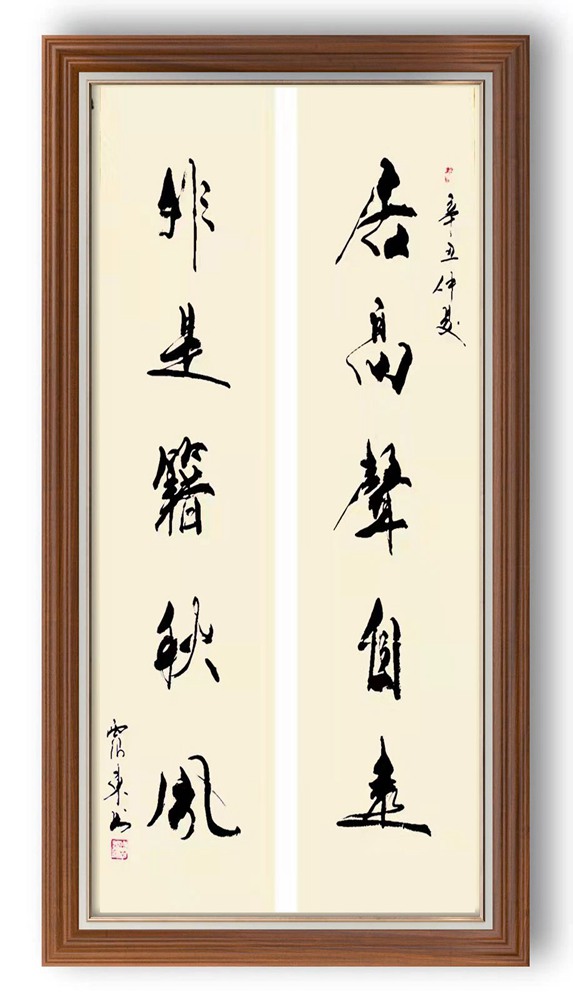 辛丑仲夏
居高聲自遠
非是籍秋風